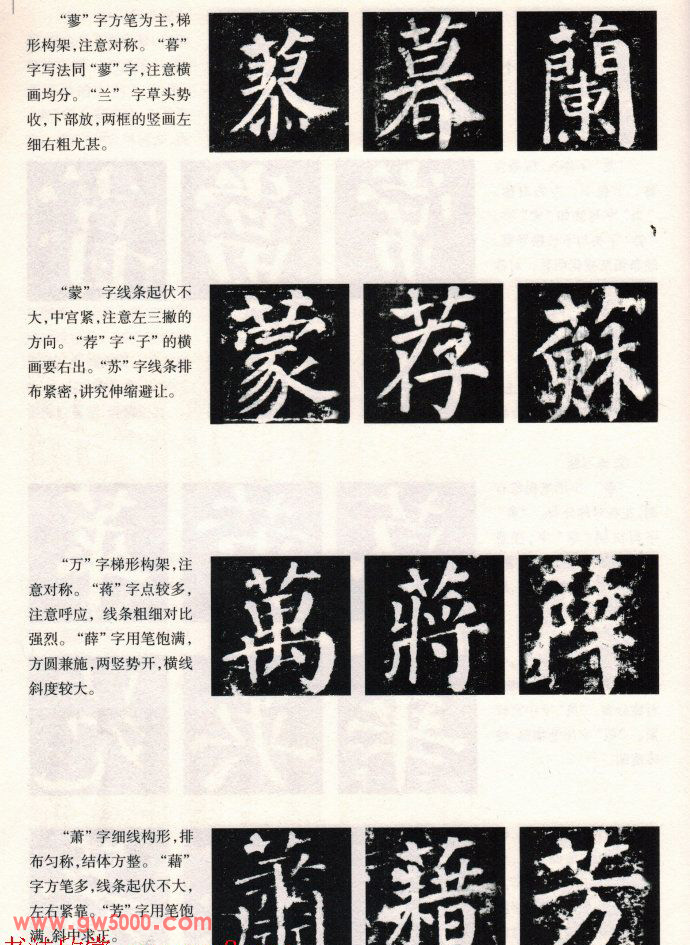 “蓼”字方笔为主,梯
形构架,注意对称。“暮”
字写法同“蓼”字,注意横
画均分。“兰”字草头势
收,下部放,两框的竖画左
细右粗尤甚。
慕暮蘭
“蒙”字线条起伏不
大,中宫紧,注意左三撇的
方向。“荐”字“子”的横
画要右出。“苏”字线条排
布紧密,讲究伸缩避让。
蒙荐蘇
“万”字梯形构架,注
意对称。“蒋”字点较多,
注意呼应,线条粗细对比
强烈。“薛”字用笔饱满,
方圆兼施,两竖势开,横线
斜度较大。
萬蔣薛
“萧”字细线构形,排
布匀称,结体方整。“藉”
字方笔多,线条起伏不大,
左右紧靠。“芳”字用笔饱
满,斜中求正。
蕭藉芳
www.gw5000.com